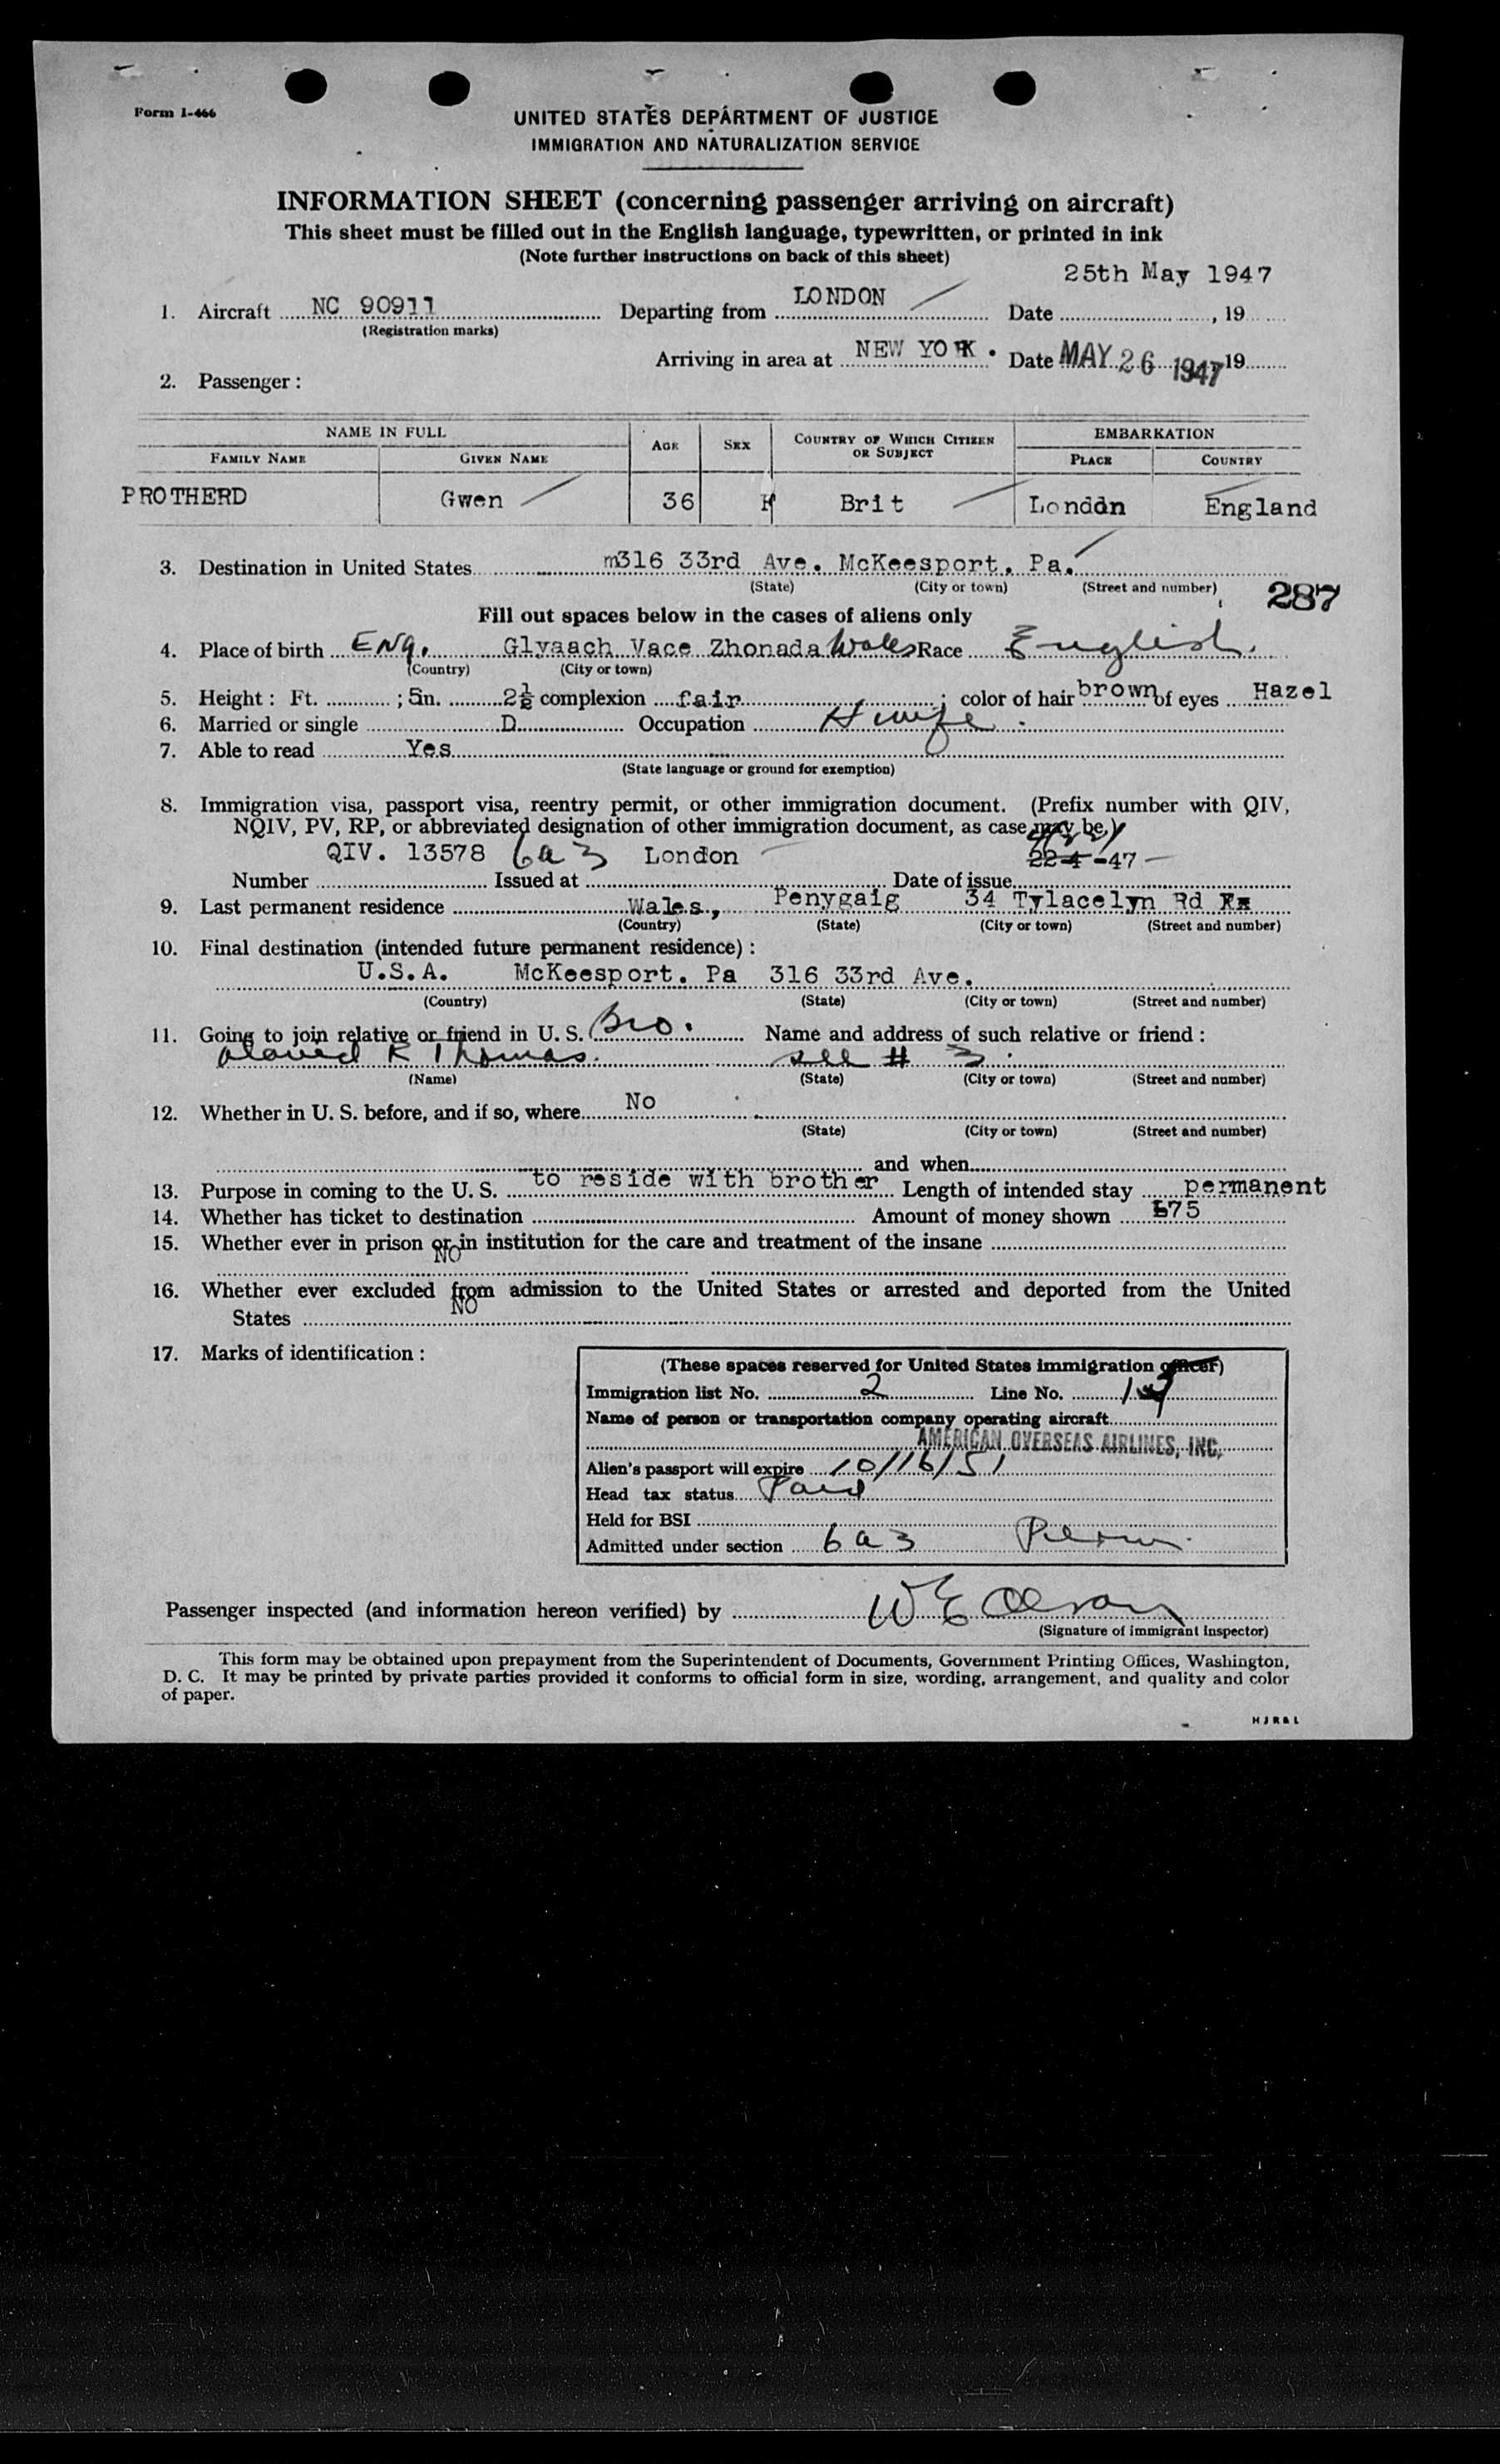 Form I-466
UNITED STATES DEPARTMENT OF JUSTICE
IMMIGRATION AND NATURALIZATION SERVICE
INFORMATION SHEET (concerning passenger arriving on aircraft)
This sheet must be filled out in the English language, typewritten, or printed in ink
(Note further instructions on back of this sheet)
25th May 1947
1. Aircraft NC 90911 Departing from LONDON Date , 19
(Registration marks)
Arriving in area at NEW YORK. Date MAY 26 1947 19
2. Passenger:
NAME IN FULL AGE SEX COUNTRY OF WHICH CITIZEN OR SUBJECT EMBARKATION
FAMILY NAME GIVEN NAME PLACE COUNTRY
PROTHERD Gwen 36 Brit London England
3. Destination in United States m316 33rd Ave. McKeesport. Pa.
(State) (City or town) (Street and number)
287
Fill out spaces below in the cases of aliens only
4. Place of birth Eng. Glyaach Vace Zhonada Wales Race English.
(Country) (City or town)
5. Height: Ft. ; 5in. 2½ complexion fair ; color of hair brown of eyes Hazel
6. Married or single D Occupation H wife
7. Able to read Yes
(State language or ground for exemption)
8. Immigration visa, passport visa, reentry permit, or other immigration document. (Prefix number with QIV,
NQIV, PV, RP, or abbreviated designation of other immigration document, as case may be.)
QIV. 13578 6a3 London 22-4-47
Number Issued at Date of issue
9. Last permanent residence Wales, Penygaig 34 Tylacelyn Rd
(Country) (State) (City or town) (Street and number)
10. Final destination (intended future permanent residence):
U.S.A. McKeesport. Pa 316 33rd Ave.
(Country) (State) (City or town) (Street and number)
11. Going to join relative or friend in U. S. Bro. Name and address of such relative or friend:
David R Thomas. see # 3.
(Name) (State) (City or town) (Street and number)
12. Whether in U. S. before, and if so, where No
(State) (City or town) (Street and number)
and when
13. Purpose in coming to the U. S. to reside with brother Length of intended stay permanent
14. Whether has ticket to destination Amount of money shown 75
15. Whether ever in prison or in institution for the care and treatment of the insane
NO
16. Whether ever excluded from admission to the United States or arrested and deported from the United
NO
States
17. Marks of identification:
(These spaces reserved for United States immigration officer)
Immigration list No. 2 Line No. 1
Name of person or transportation company operating aircraft
AMERICAN OVERSEAS AIRLINES, INC.
Alien's passport will expire 10/16/51
Head tax status Paid
Held for BSI
Admitted under section 6a3 Perm.
Passenger inspected (and information hereon verified) by W E Olson
(Signature of immigrant inspector)
This form may be obtained upon prepayment from the Superintendent of Documents, Government Printing Offices, Washington,
D. C. It may be printed by private parties provided it conforms to official form in size, wording, arrangement, and quality and color
of paper.
HJR&L